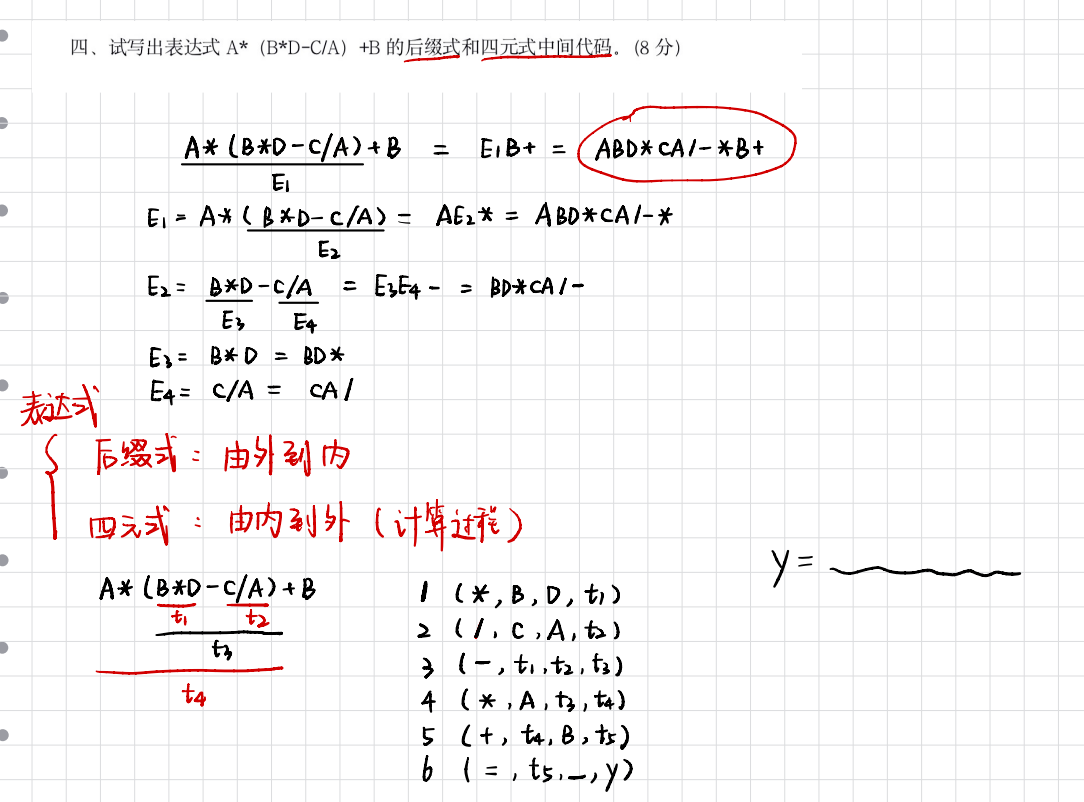 四、试写出表达式 A*（B*D-C/A）+B 的后缀式和四元式中间代码.（8 分）
A*(B*D-C/A)+B = E1B+ = ABD*CA/-*B+
E1
E1 = A*(B*D-C/A) = AE2* = ABD*CA/-*
E2
E2 = B*D-C/A = E3E4- = BD*CA/-
E3 E4
E3 = B*D = BD*
E4 = C/A = CA/
表达式
后缀式：由外到内
四元式：由内到外（计算过程）
y =
A*(B*D-C/A)+B
t1 t2
t3
t4
1 (*, B, D, t1)
2 (/, C, A, t2)
3 (-, t1, t2, t3)
4 (*, A, t3, t4)
5 (+, t4, B, t5)
6 (=, t5, _, y)